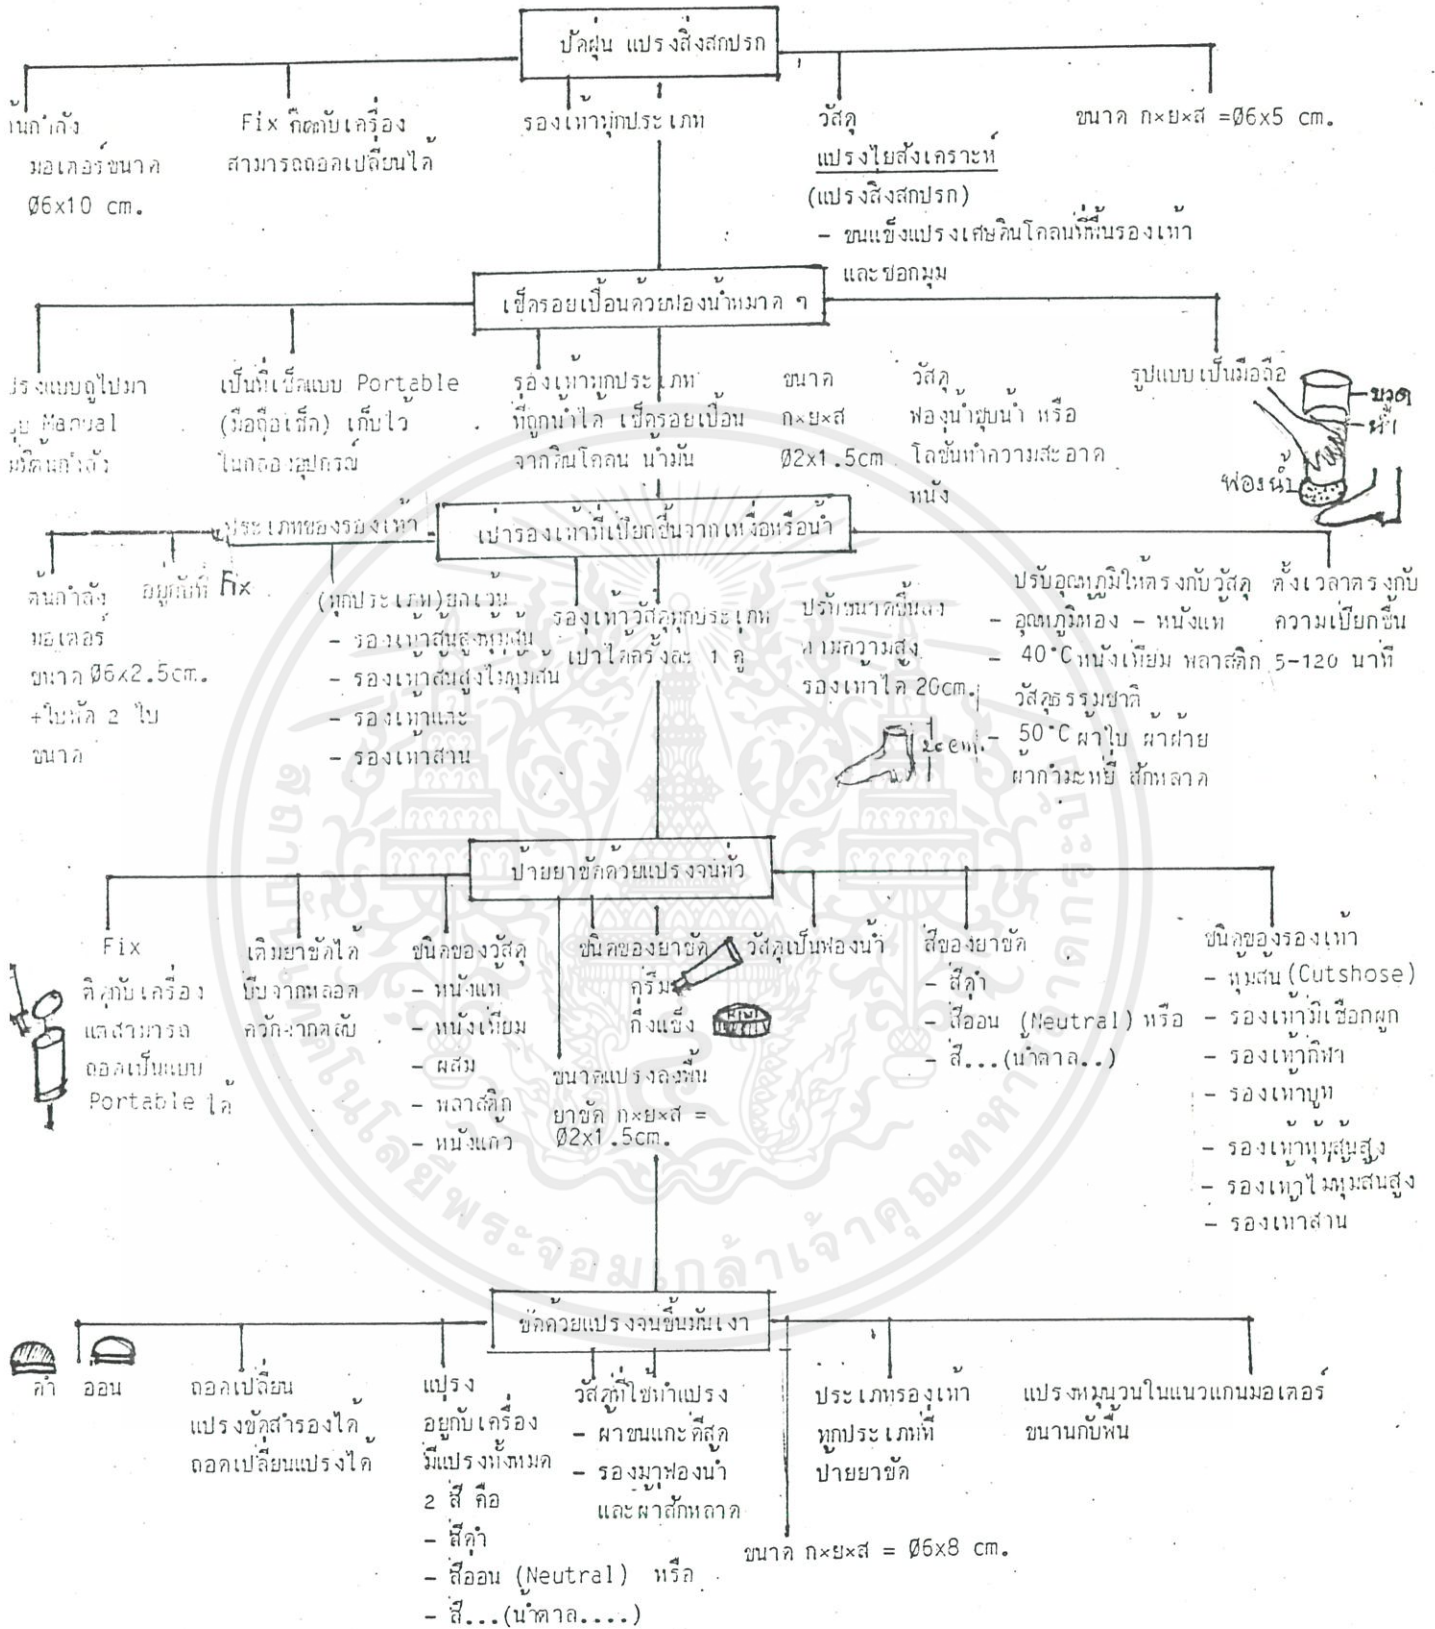 ปัดฝุ่น แปรงสิ่งสกปรก
ต้นกำลัง
มอเตอร์ขนาด
Ø6x10 cm.
Fix ติดกับเครื่อง
สามารถถอดเปลี่ยนได้
รองเท้าทุกประเภท
วัสดุ
แปรงใยสังเคราะห์
(แปรงสิ่งสกปรก)
- ขนแข็งแปรงเศษดินโคลนที่พื้นรองเท้า
และซอกมุม
ขนาด ก×ย×ส =Ø6x5 cm.
เช็ดรอยเปื้อนด้วยฟองน้ำหมาด ๆ
ปรงแบบถูไปมา
Manual
เป็นที่เช็ดแบบ Portable
(มือถือเช็ด) เก็บไว้
ในกล่องอุปกรณ์
รองเท้าทุกประเภท
ที่ถูกน้ำได้ เช็ดรอยเปื้อน
จากดินโคลน น้ำมัน
ขนาด
ก×ย×ส
Ø2x1.5cm
วัสดุ
ฟองน้ำชุบน้ำ หรือ
โลชั่นทำความสะอาด
หนัง
รูปแบบ เป็นมือถือ
ขวด
น้ำ
ฟองน้ำ
เป่ารองเท้าที่เปียกชื้นจากเหงื่อหรือน้ำ
ต้นกำลัง
มอเตอร์
ขนาด Ø6x2.5cm.
+ใบพัด 2 ใบ
ขนาด
อยู่กับที่ Fix
ประเภทของรองเท้า
(ทุกประเภท)ยกเว้น
- รองเท้าส้นสูงหุ้มส้น
- รองเท้าส้นสูงไม่หุ้มส้น
- รองเท้าแตะ
- รองเท้าสาน
รองเท้าวัสดุทุกประเภท
เป่าได้ครั้งละ 1 คู่
ปรับขนาดขึ้นลง
ตามความสูง
รองเท้าได้ 20cm.
20cm.
ปรับอุณหภูมิให้ตรงกับวัสดุ
- อุณหภูมิห้อง - หนังแท้
- 40°C หนังเทียม พลาสติก
วัสดุธรรมชาติ
- 50°C ผ้าใบ ผ้าฝ้าย
ผ้ากำมะหยี่ สักหลาด
ตั้งเวลาตรงกับ
ความเปียกชื้น
5-120 นาที
ป้ายยาขัดด้วยแปรงจนทั่ว
Fix
ติดกับเครื่อง
แต่สามารถ
ถอดเป็นแบบ
Portable ได้
เติมยาขัดได้
บีบจากหลอด
ควักจากตลับ
ชนิดของวัสดุ
- หนังแท้
- หนังเทียม
- ผสม
- พลาสติก
- หนังแก้ว
ขนาดแปรงลงพื้น
ยาขัด ก×ย×ส =
Ø2x1.5cm.
ชนิดของยาขัด
ครีม
กึ่งแข็ง
KIWI
วัสดุเป็นฟองน้ำ
สีของยาขัด
- สีดำ
- สีอ่อน (Neutral) หรือ
- สี...(น้ำตาล..)
ชนิดของรองเท้า
- หุ้มส้น (Cutshose)
- รองเท้ามีเชือกผูก
- รองเท้ากีฬา
- รองเท้าบูท
- รองเท้าหุ้มส้นสูง
- รองเท้าไม่หุ้มส้นสูง
- รองเท้าสาน
ขัดด้วยแปรงจนขึ้นมันเงา
ดำ อ่อน
ถอดเปลี่ยน
แปรงขัดสำรองได้
ถอดเปลี่ยนแปรงได้
แปรง
อยู่กับเครื่อง
มีแปรงทั้งหมด
2 สี คือ
- สีดำ
- สีอ่อน (Neutral) หรือ
- สี...(น้ำตาล....)
วัสดุที่ใช้ทำแปรง
- ผ้าขนแกะดีสุด
- รองมาฟองน้ำ
และผ้าสักหลาด
ขนาด ก×ย×ส = Ø6x8 cm.
ประเภทรองเท้า
ทุกประเภทที่
ป้ายยาขัด
แปรงหมุนวนในแนวแกนมอเตอร์
ขนานกับพื้น
สถาบันเทคโนโลยีพระจอมเกล้าเจ้าคุณทหารลาดกระบัง